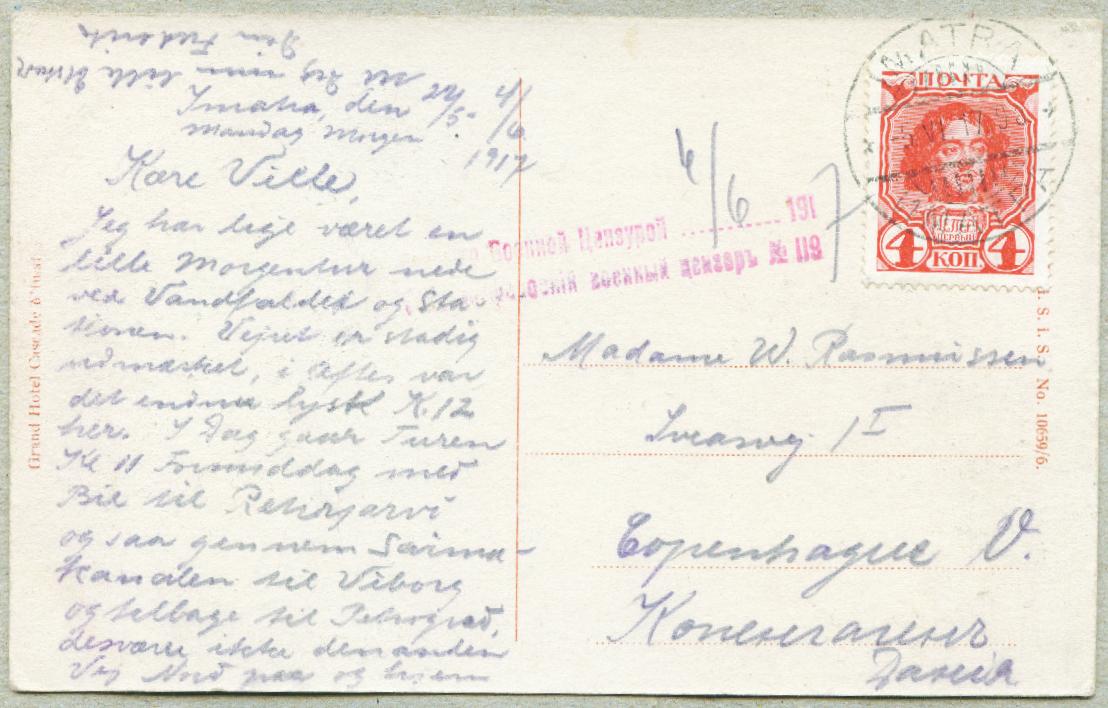 Imatra, den 22/5 - 4/6
Mandag Morgen 1917
Kære Ville,
Jeg har lige været en
lille Morgentur nede
ved Vandfaldet og Sta-
tionen. Vejret er stadig
udmærket, i Aftes var
det endnu lyst Kl. 12
her. I Dag gaar Turen
Kl 11 Formiddag med
Bil til Rättijärvi
og saa gennem Saima-
Kanalen til Viborg
og tilbage til Petrograd,
desværre ikke den anden
Vej Nord paa og hjem
min lille
Din Frederik
Grand Hotel Cascade d'Imat
IMATRA
ПОЧТА
4 КОП 4
4/6 7
Военной Цензурой .......... 191
военный цензоръ № 119
Madame W. Rasmussen
Sveasvej 1 I
Copenhague V.
Копенгагенъ
Данія
S. i. S. No. 10659/6.